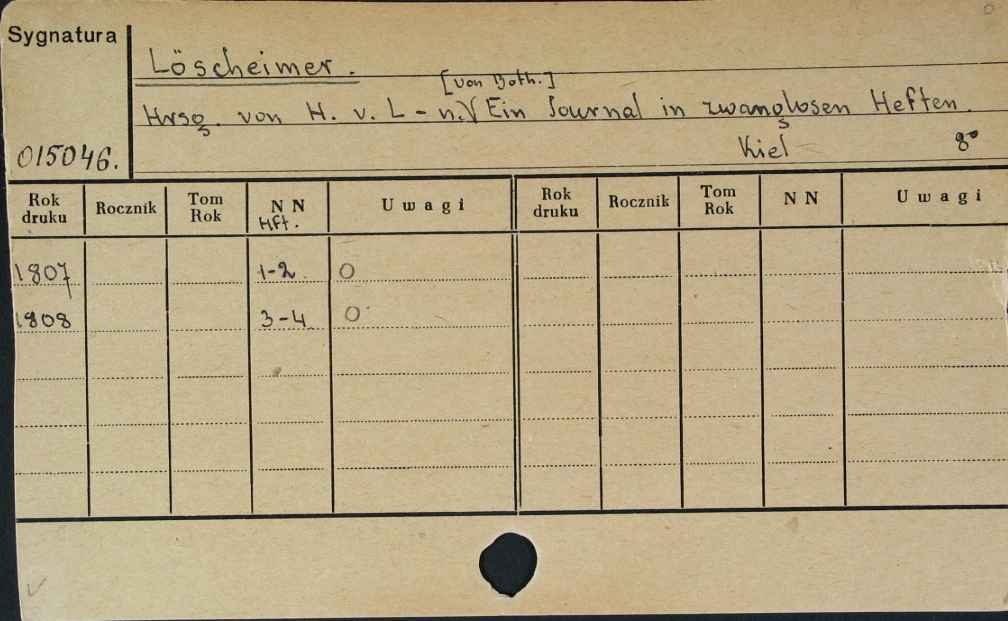 Sygnatura
Löscheimer.
[von Both.]
Hrsg. von H. v. L-n. Ein Journal in zwanglosen Heften.
015046. Kiel 8°
Rok druku Rocznik Tom Rok N N Uwagi Rok druku Rocznik Tom Rok N N Uwagi
Hft.
1807 1-2 O
1808 3-4 O